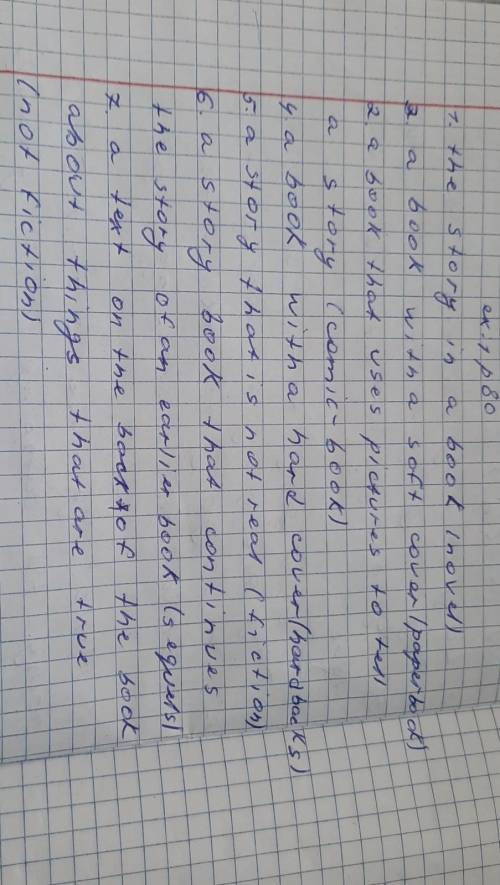 ex. 1 p 80
1. the story in a book (novel)
3. a book with a soft cover (paperback)
2. a book that uses pictures to tell
a story (comic-book)
4. a book with a hard cover (hardbacks)
5. a story that is not real (fiction)
6. a story book that continues
the story of an earlier book (sequels)
7. a text on the back of the book
about things that are true
(not fiction)